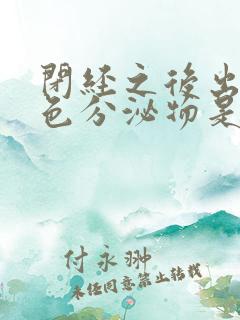 閉経之後出
色分泌物是
付永翀
未经同意禁止转载